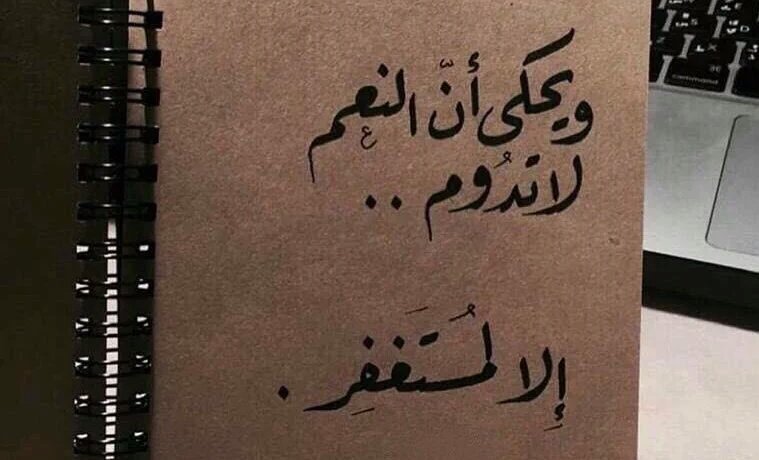 ويحكى أنّ النعم
لا تدُوم ..
إلا لمُستَغفِر .
command